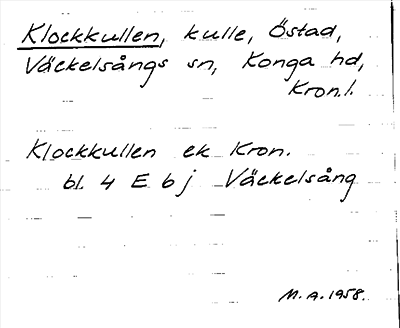 Klockkullen, kulle, Östad,
Väckelsångs sn, Konga hd,
Kron.l.
Klockkullen ek Kron.
bl. 4 E b j Väckelsång
M. A. 1958.